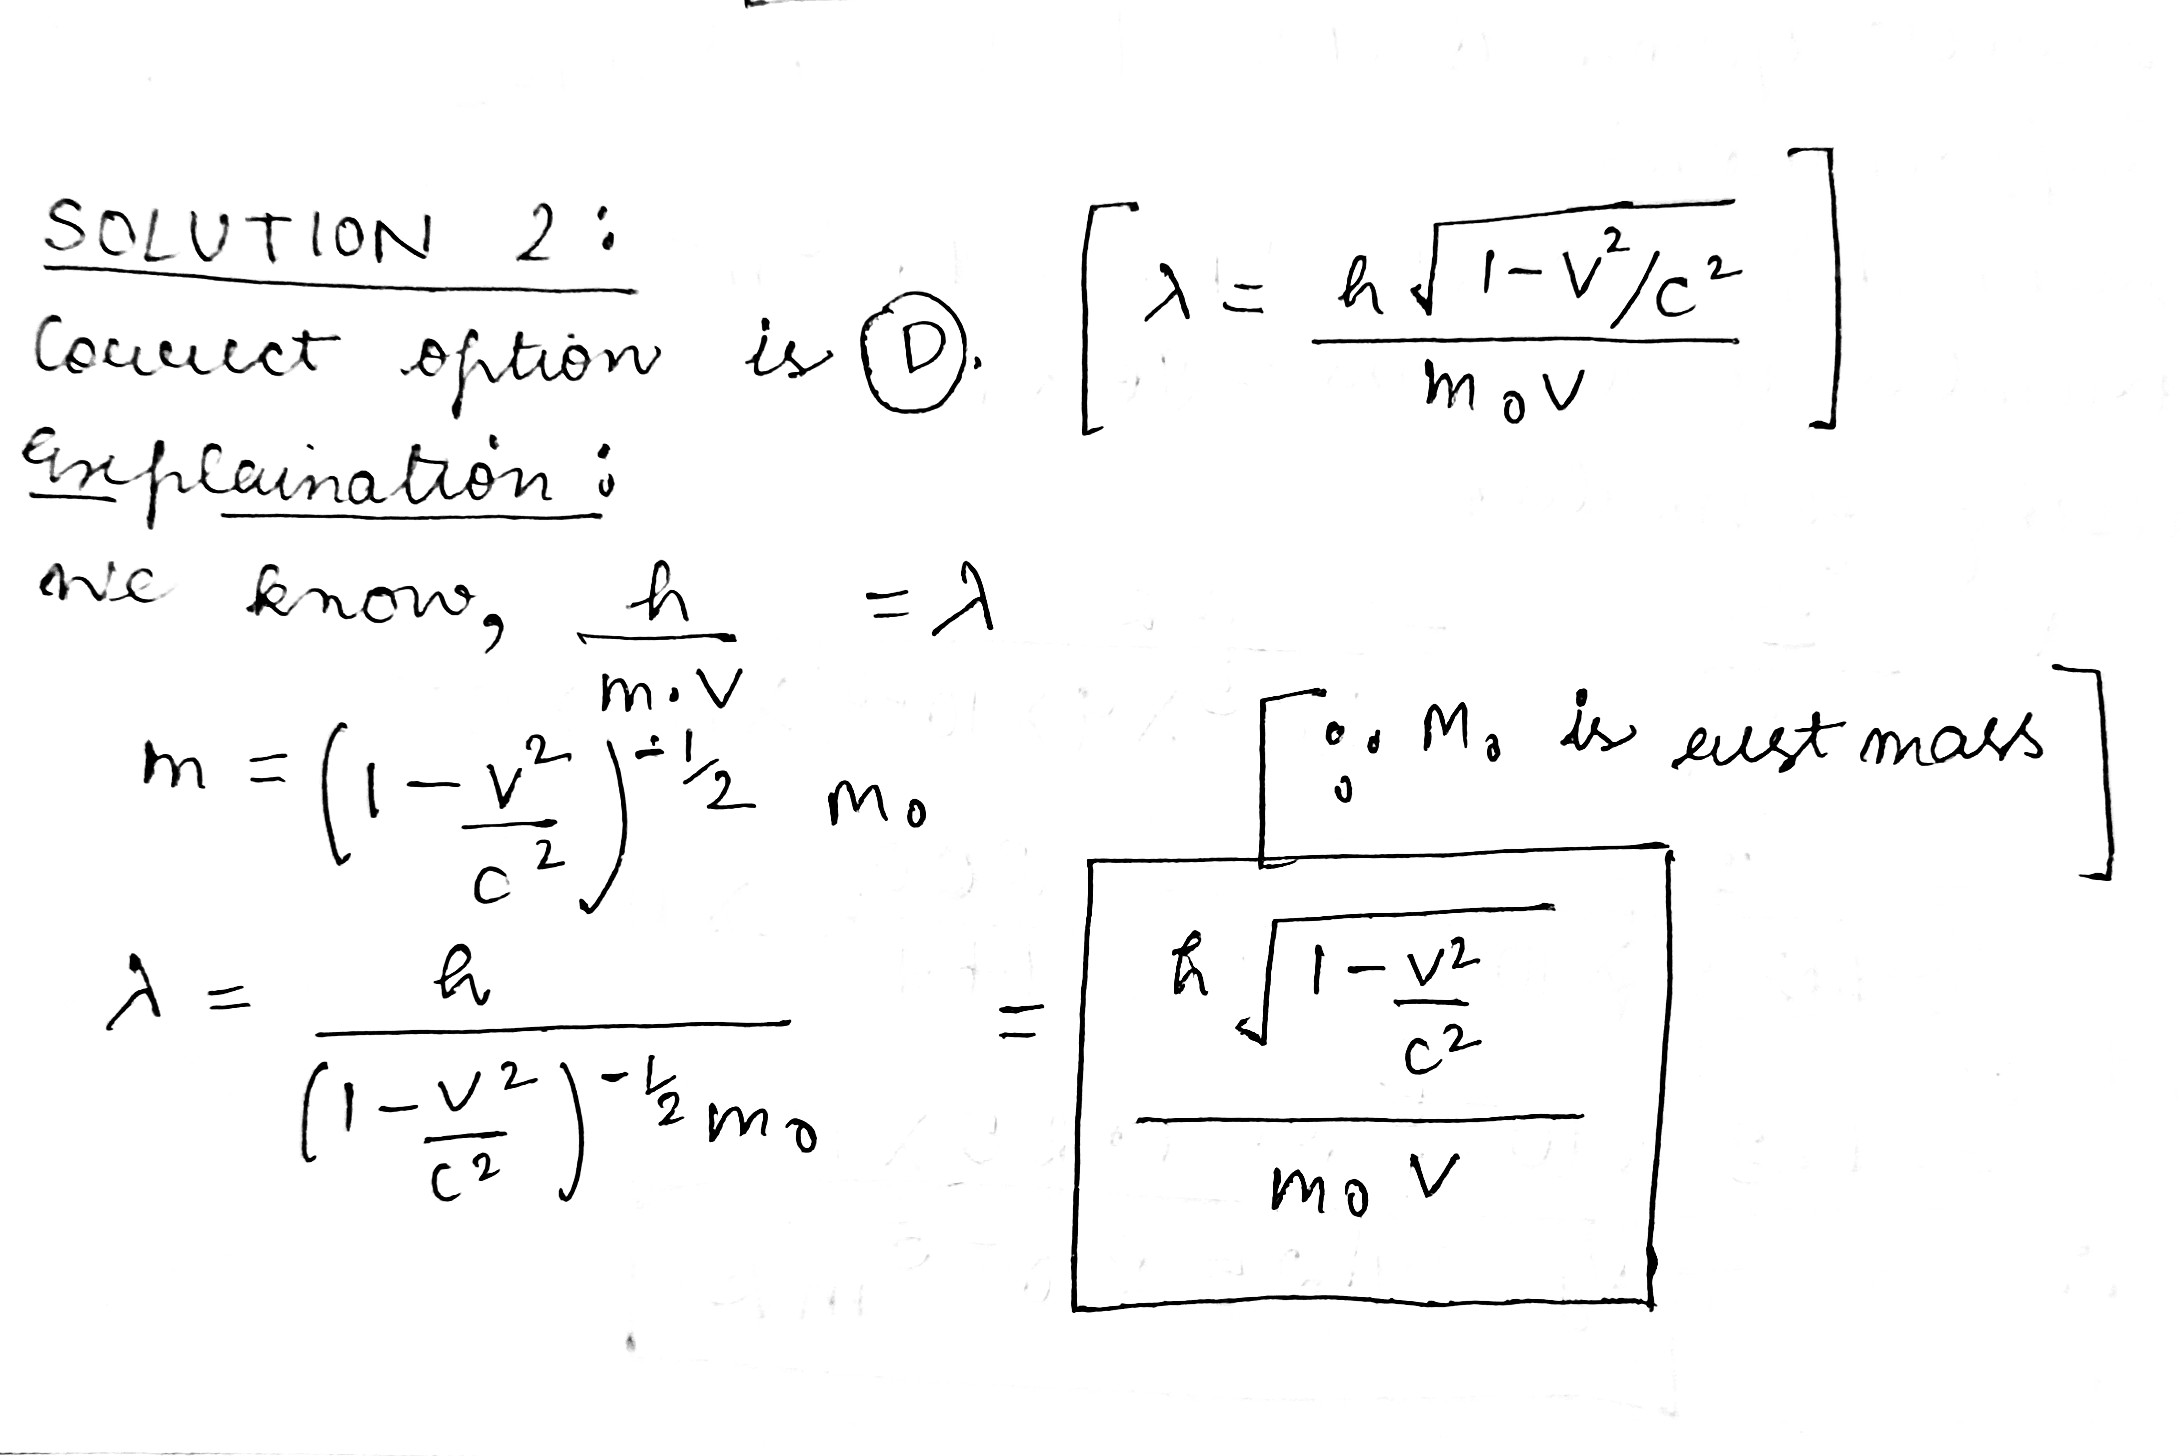 SOLUTION 2:
Correct option is (D). [λ = h√(1-V²/C²) / m₀V]
Explaination:
we know, h / m.V = λ
m = (1 - V²/C²)^(-1/2) m₀ [∵ M₀ is rest mass]
λ = h / (1 - V²/C²)^(-1/2) m₀ = h√(1 - V²/C²) / m₀ V